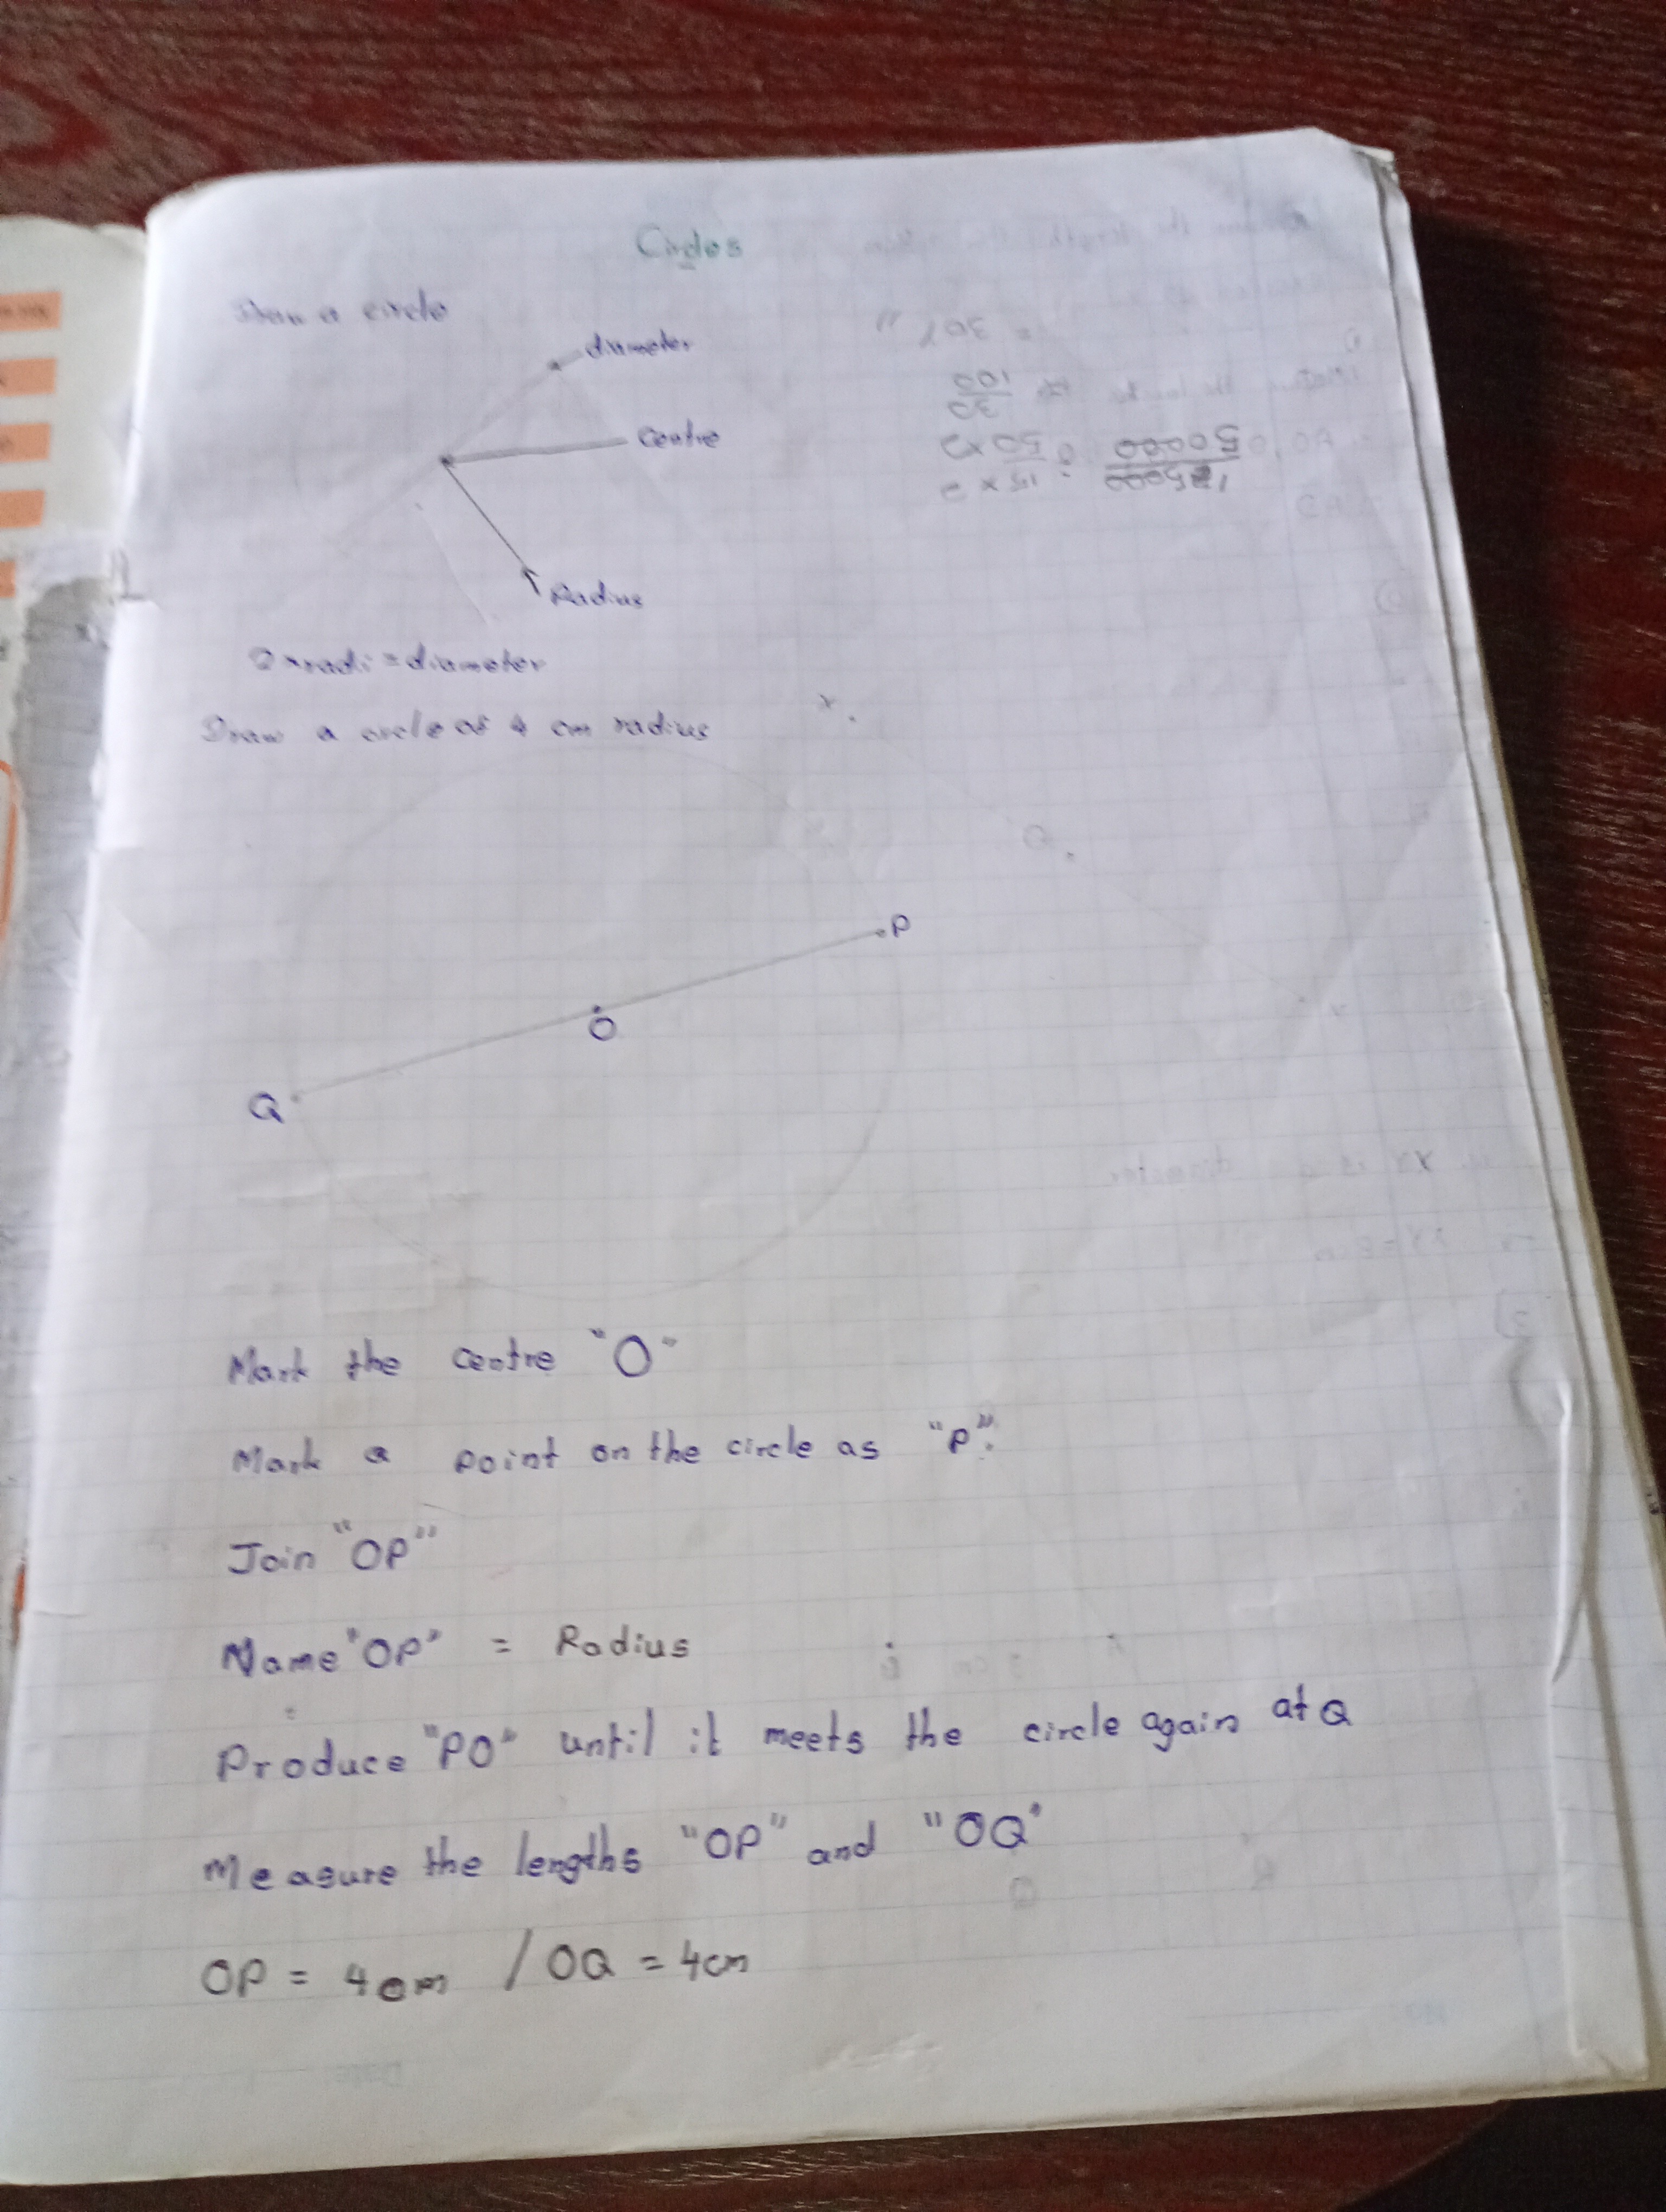 Circles
Draw a circle
diameter
Centre
Radius
2 × radi = diameter
Draw a circle of 4 cm radius
P
O
Q
Mark the centre "O"
Mark a point on the circle as "P".
Join "OP"
Name "OP" = Radius
Produce "PO" until it meets the circle again at Q
Measure the lengths "OP" and "OQ"
OP = 4cm / OQ = 4cm